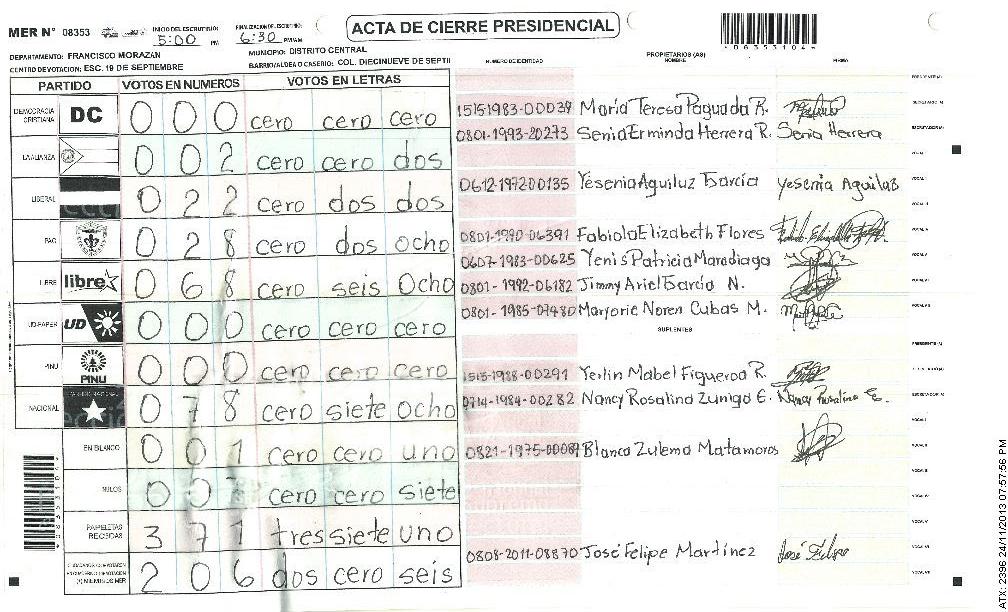 MER N° 08353
INICIO DEL ESCRUTINIO: 5:00 PM
FINALIZACION DE ESCRUTINIO: 6:30 PM/AM
ACTA DE CIERRE PRESIDENCIAL
- 0 8 3 5 3 1 0 4 -
DEPARTAMENTO: FRANCISCO MORAZÁN
MUNICIPIO: DISTRITO CENTRAL
CENTRO DE VOTACION: ESC. 19 DE SEPTIEMBRE
BARRIO/ALDEA O CASERIO: COL. DIECINUEVE DE SEPTII
PARTIDO VOTOS EN NUMEROS VOTOS EN LETRAS
NUMERO DE IDENTIDAD
PROPIETARIOS (AS)
NOMBRE
FIRMA
DEMOCRACIA CRISTIANA DC 0 0 0 cero cero cero
LA ALIANZA 0 0 2 cero cero dos
LIBERAL 0 2 2 cero dos dos
PAC 0 2 8 cero dos ocho
LIBRE libre 0 6 8 cero seis ocho
UD-FAPER UD 0 0 0 cero cero cero
PINU PINU 0 0 0 cero cero cero
NACIONAL 0 7 8 cero siete ocho
EN BLANCO 0 0 1 cero cero uno
NULOS 0 0 7 cero cero siete
PAPELETAS RECIBIDAS 3 7 1 tres siete uno
2 0 6 dos cero seis
1515-1983-00039 María Teresa Paguada R.
0801-1993-20273 Senia Erminda Herrera R. Senia Herrera
0612-197200135 Yesenia Aguiluz García Yesenia Aguiluz
0801-1990-06391 Fabiola Elizabeth Flores
0607-1983-00625 Yenis Patricia Maradiaga
0801-1992-06182 Jimmy Ariel García N.
0801-1985-07480 Marjorie Noren Cubas M.
SUPLENTES
1515-1988-00291 Yerlin Mabel Figueroa R.
0714-1984-00282 Nancy Rosalina Zuniga E.
0821-1975-00089 Blanca Zulema Matamoros
0808-2011-08870 José Felipe Martínez
ATX: 2396 24/11/2013 07:57:56 PM